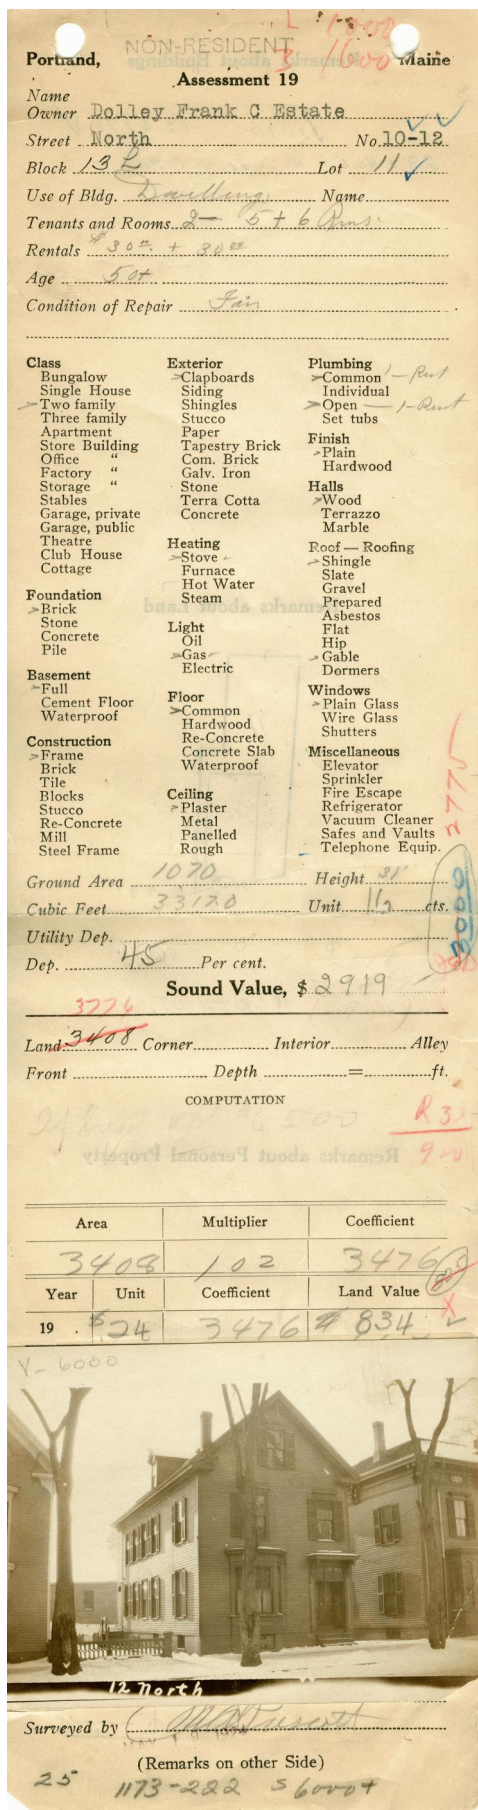 L 1000
NON-RESIDENT
3 1600
Portland, Maine
Assessment 19
Name
Owner Dolley Frank C Estate
Street North No. 10-12
Block 13 L Lot 11
Use of Bldg. Dwelling Name
Tenants and Rooms 2 — 5 + 6 Rms.
Rentals $30.00 + 30.00
Age 50+
Condition of Repair Fair
Class
Bungalow
Single House
Two family
Three family
Apartment
Store Building
Office "
Factory "
Storage "
Stables
Garage, private
Garage, public
Theatre
Club House
Cottage
Foundation
Brick
Stone
Concrete
Pile
Basement
Full
Cement Floor
Waterproof
Construction
Frame
Brick
Tile
Blocks
Stucco
Re-Concrete
Mill
Steel Frame
Exterior
Clapboards
Siding
Shingles
Stucco
Paper
Tapestry Brick
Com. Brick
Galv. Iron
Stone
Terra Cotta
Concrete
Heating
Stove
Furnace
Hot Water
Steam
Light
Oil
Gas
Electric
Floor
Common
Hardwood
Re-Concrete
Concrete Slab
Waterproof
Ceiling
Plaster
Metal
Panelled
Rough
Plumbing
Common 1 — Rent
Individual
Open — 1 - Rent
Set tubs
Finish
Plain
Hardwood
Halls
Wood
Terrazzo
Marble
Roof — Roofing
Shingle
Slate
Gravel
Prepared
Asbestos
Flat
Hip
Gable
Dormers
Windows
Plain Glass
Wire Glass
Shutters
Miscellaneous
Elevator
Sprinkler
Fire Escape
Refrigerator
Vacuum Cleaner
Safes and Vaults
Telephone Equip.
2775
3000
Ground Area 1070 Height 31'
Cubic Feet 33170 Unit cts.
Utility Dep.
Dep. 45 Per cent.
Sound Value, $ 2919
3776
Land 3408 Corner Interior Alley
Front Depth = ft.
COMPUTATION
500
Area Multiplier Coefficient
3408 102 3476
Year Unit Coefficient Land Value
19 . $.24 3476 $ 834
V- 6000
12 North
Surveyed by
(Remarks on other Side)
25 1173-222 $6000+